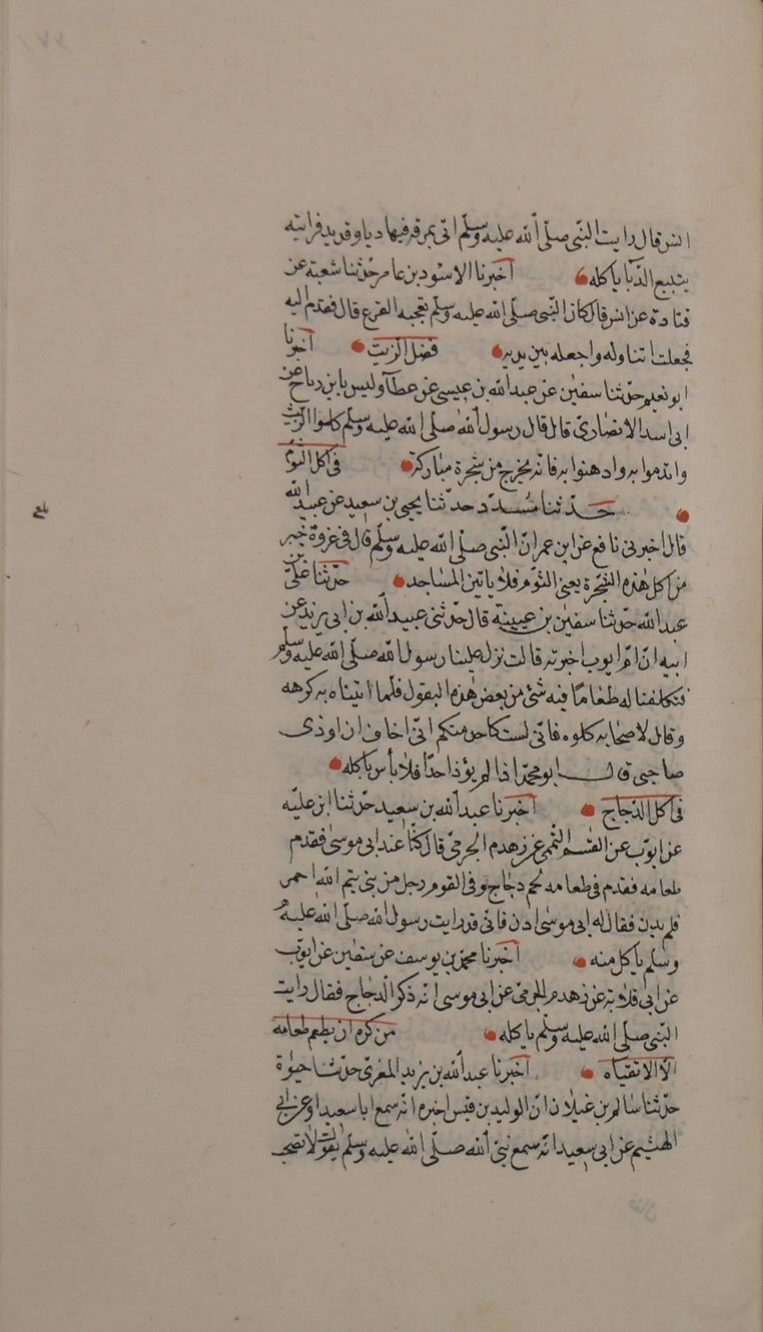 انس قال رايت النبي صلى الله عليه وسلم اتى بمرقة فيها دبا وقديد فرايته
يتتبع الدبا ياكله اخبرنا الاسود بن عامر حدثنا شعبة عن
قتادة عن انس قال كان النبي صلى الله عليه وسلم يعجبه القرع قال فقدم اليه
فجعلت اتناوله واجعله بين يديه فضل الزيت اخبرنا
ابو نعيم حدثنا سفين عن عبد الله بن عيسى عن عطآ وليس بابن رباح عن
ابى اسد الانصارى قال قال رسول الله صلى الله عليه وسلم كلوا الزيت
وائدموا به وادهنوا به فانه يخرج من شجرة مباركة فى اكل الثوم
حدثنا مسدد حدثنا يحيى بن سعيد عن عبيد الله
قال اخبرنى نافع عن ابن عمر ان النبى صلى الله عليه وسلم قال فى غزوة خيبر
من اكل هذه الشجرة يعنى الثوم فلا ياتين المساجد حدثنا على بن
عبد الله حدثنا سفين بن عيينة قال حدثنى عبيد الله بن ابى يزيد عن
ابيه ان ام ايوب اخبرته قالت نزل علينا رسول الله صلى الله عليه وسلم
فتكلفنا له طعاما فيه شئ من بعض هذه البقول فلما اتيناه به كرهه
وقال لاصحابه كلوه فانى لست كاحد منكم انى اخاف ان اوذى
صاحبى قال ابو محمد اذا لم يؤذ احدا فلا بأس باكله
فى اكل الدجاج اخبرنا عبد الله بن سعيد حدثنا ابن علية
عن ايوب عن القسم التميمى عن زهدم الجرمى قال كنا عند ابى موسى فقدم
طعامه فقدم فى طعامه لحم دجاج وفى القوم رجل من بنى تيم الله احمر
فلم يدن فقال له ابى موسى ادن فانى قد رايت رسول الله صلى الله عليه
وسلم ياكل منه اخبرنا محمد بن يوسف عن سفين عن ايوب
عن ابى قلابة عن زهدم الجرمى عن ابى موسى انه ذكر الدجاج فقال رايت
النبى صلى الله عليه وسلم ياكله من كره ان يطعم طعامه
الا الاتقياه اخبرنا عبد الله بن يزيد المقرى حدثنا حيوة
حدثنا سالم بن غيلان ان الوليد بن قيس اخبره انه سمع ابا سعيد او عن ابى
الهثيم عن ابى سعيد انه سمع نبى الله صلى الله عليه وسلم يقول لا تصحب
بلغ